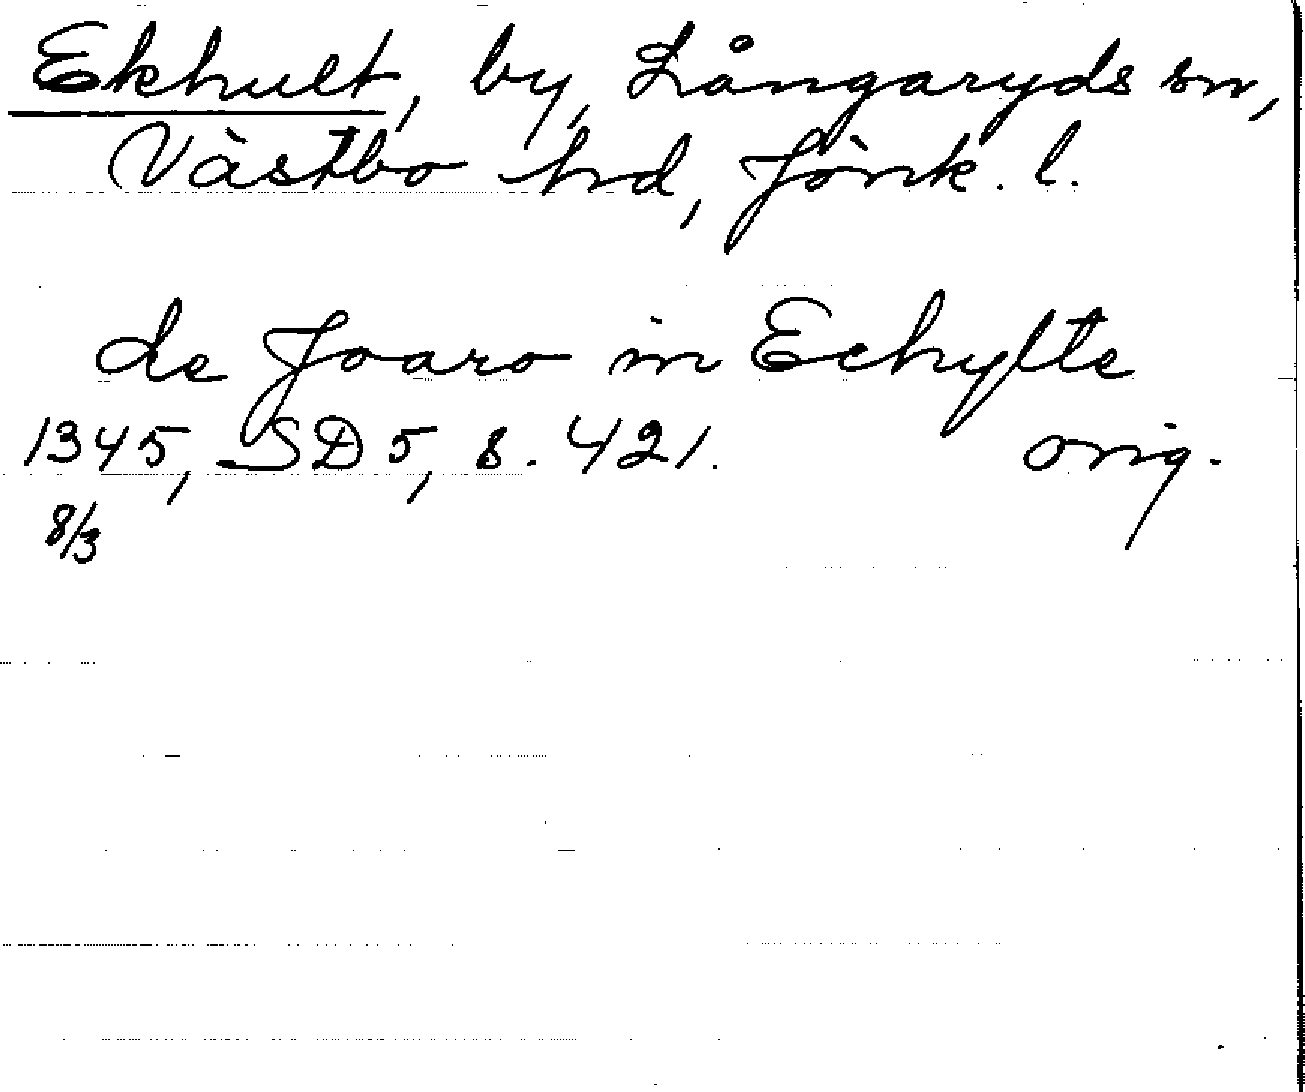 Ekhult, by, Långaryds sn,
Västbo hd, Jönk. l.
de Joaro in Echylte
1345, SD 5, s. 421. orig.
8/3